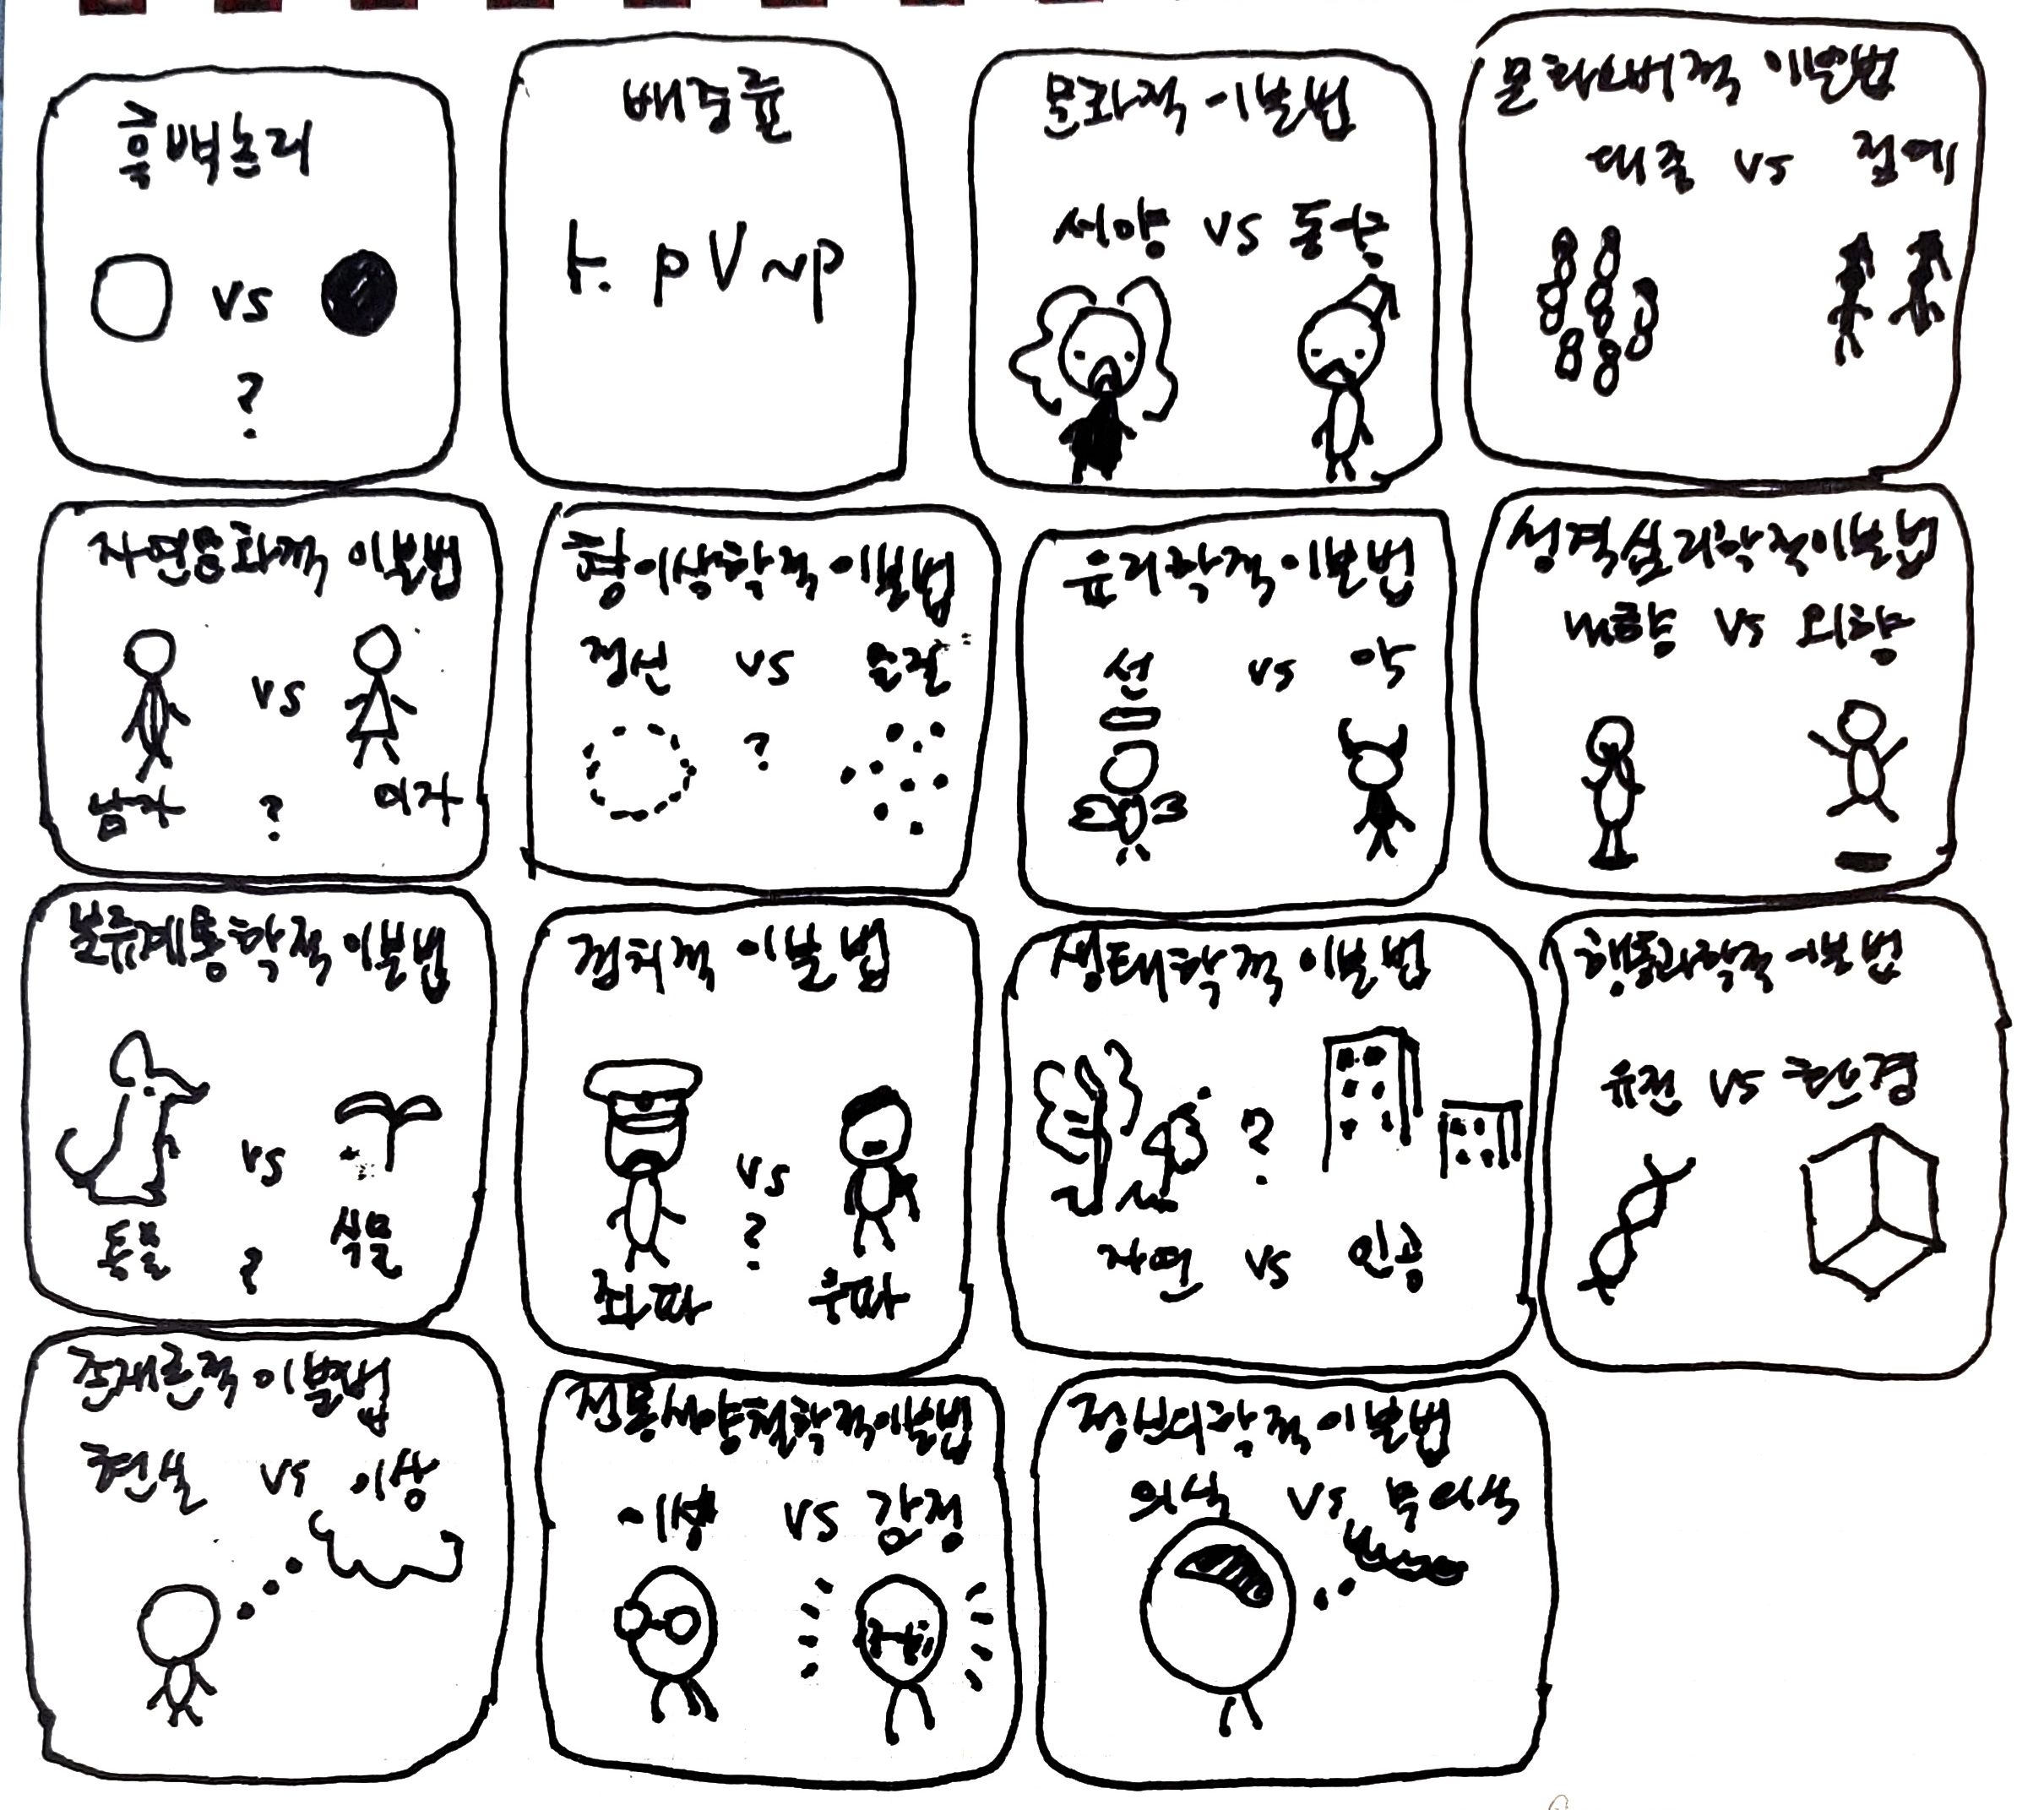 흑백논리
vs
?
배중률
⊢. p V ~p
문화적 이분법
서양 vs 동양
문화사회적 이분법
대중 vs 정예
자연문화적 이분법
vs
남자 ? 여자
형이상학적 이분법
정신 vs 물질
?
윤리학적 이분법
선 vs 악
성격심리학적 이분법
내향 vs 외향
분류계통학적 이분법
vs
동물 ? 식물
정치적 이분법
vs
?
좌파 우파
생태학적 이분법
?
자연 vs 인공
행동과학적 이분법
유전 vs 환경
존재론적 이분법
현실 vs 이상
전통서양철학적 이분법
이성 vs 감정
정신의학적 이분법
의식 vs 무의식